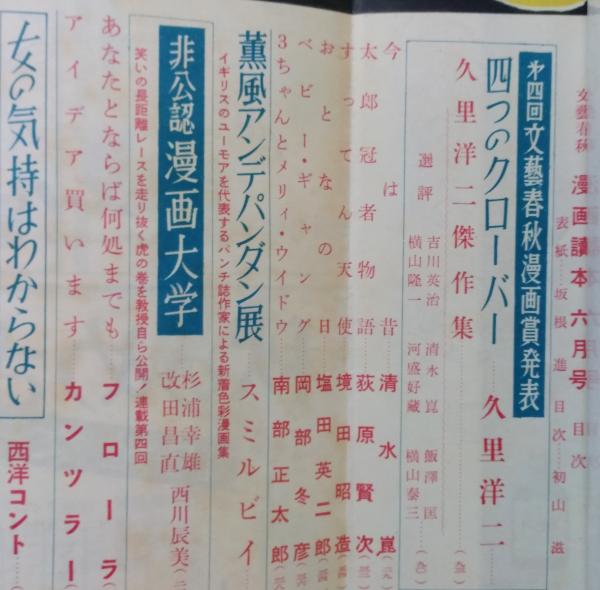 文藝春秋 漫画讀本 六月号 目次
表紙……坂根進 目次……初山滋
第四回文藝春秋漫画賞発表
四つのクローバー……久里洋二
久里洋二傑作集
選評 吉川英治 清水崑 飯澤匡
横山隆一 河盛好蔵 横山泰三
今は昔 清水崑
太郎冠者物語 荻原賢次
すってんてん天使 境田昭造
おとなの日 塩田英二郎
ベビー・ギャング 岡部冬彦
3ちゃんとメリィ・ウイドウ 南部正太郎
薫風アンデパンダン展 スミルビイ
イギリスのユーモアを代表するパンチ誌作家による新着色彩漫画集
非公認漫画大学 杉浦幸雄 改田昌直 西川辰美
笑いの長距離レースを走り抜く虎の巻を教授自ら公開!連載第四回
あなたとならば何処までも フローラ
アイデア買います カンツラー
女の気持はわからない 西洋コント